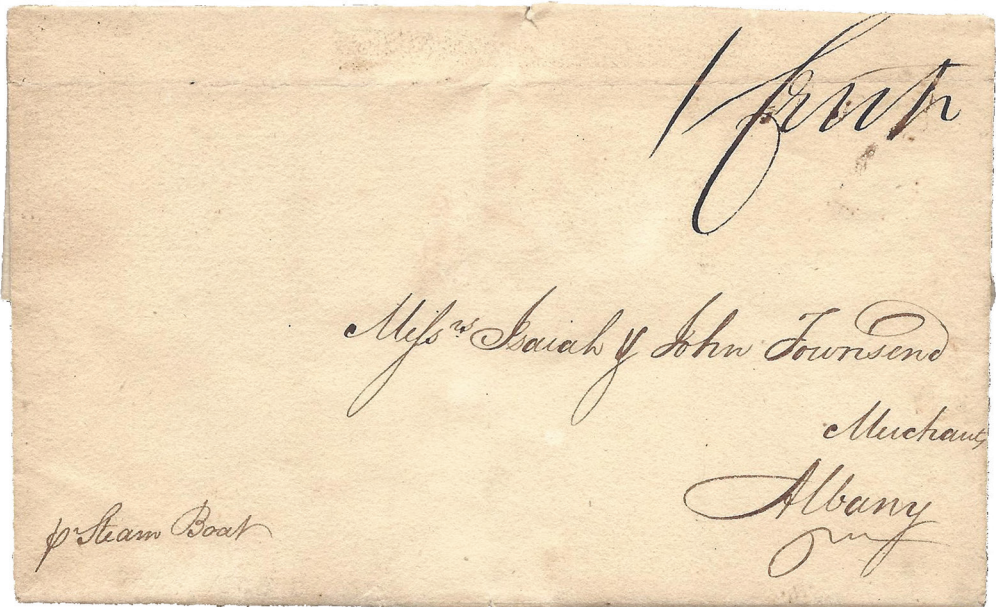 Messrs Isaiah & John Townsend
Merchants
Albany
pr Steam Boat